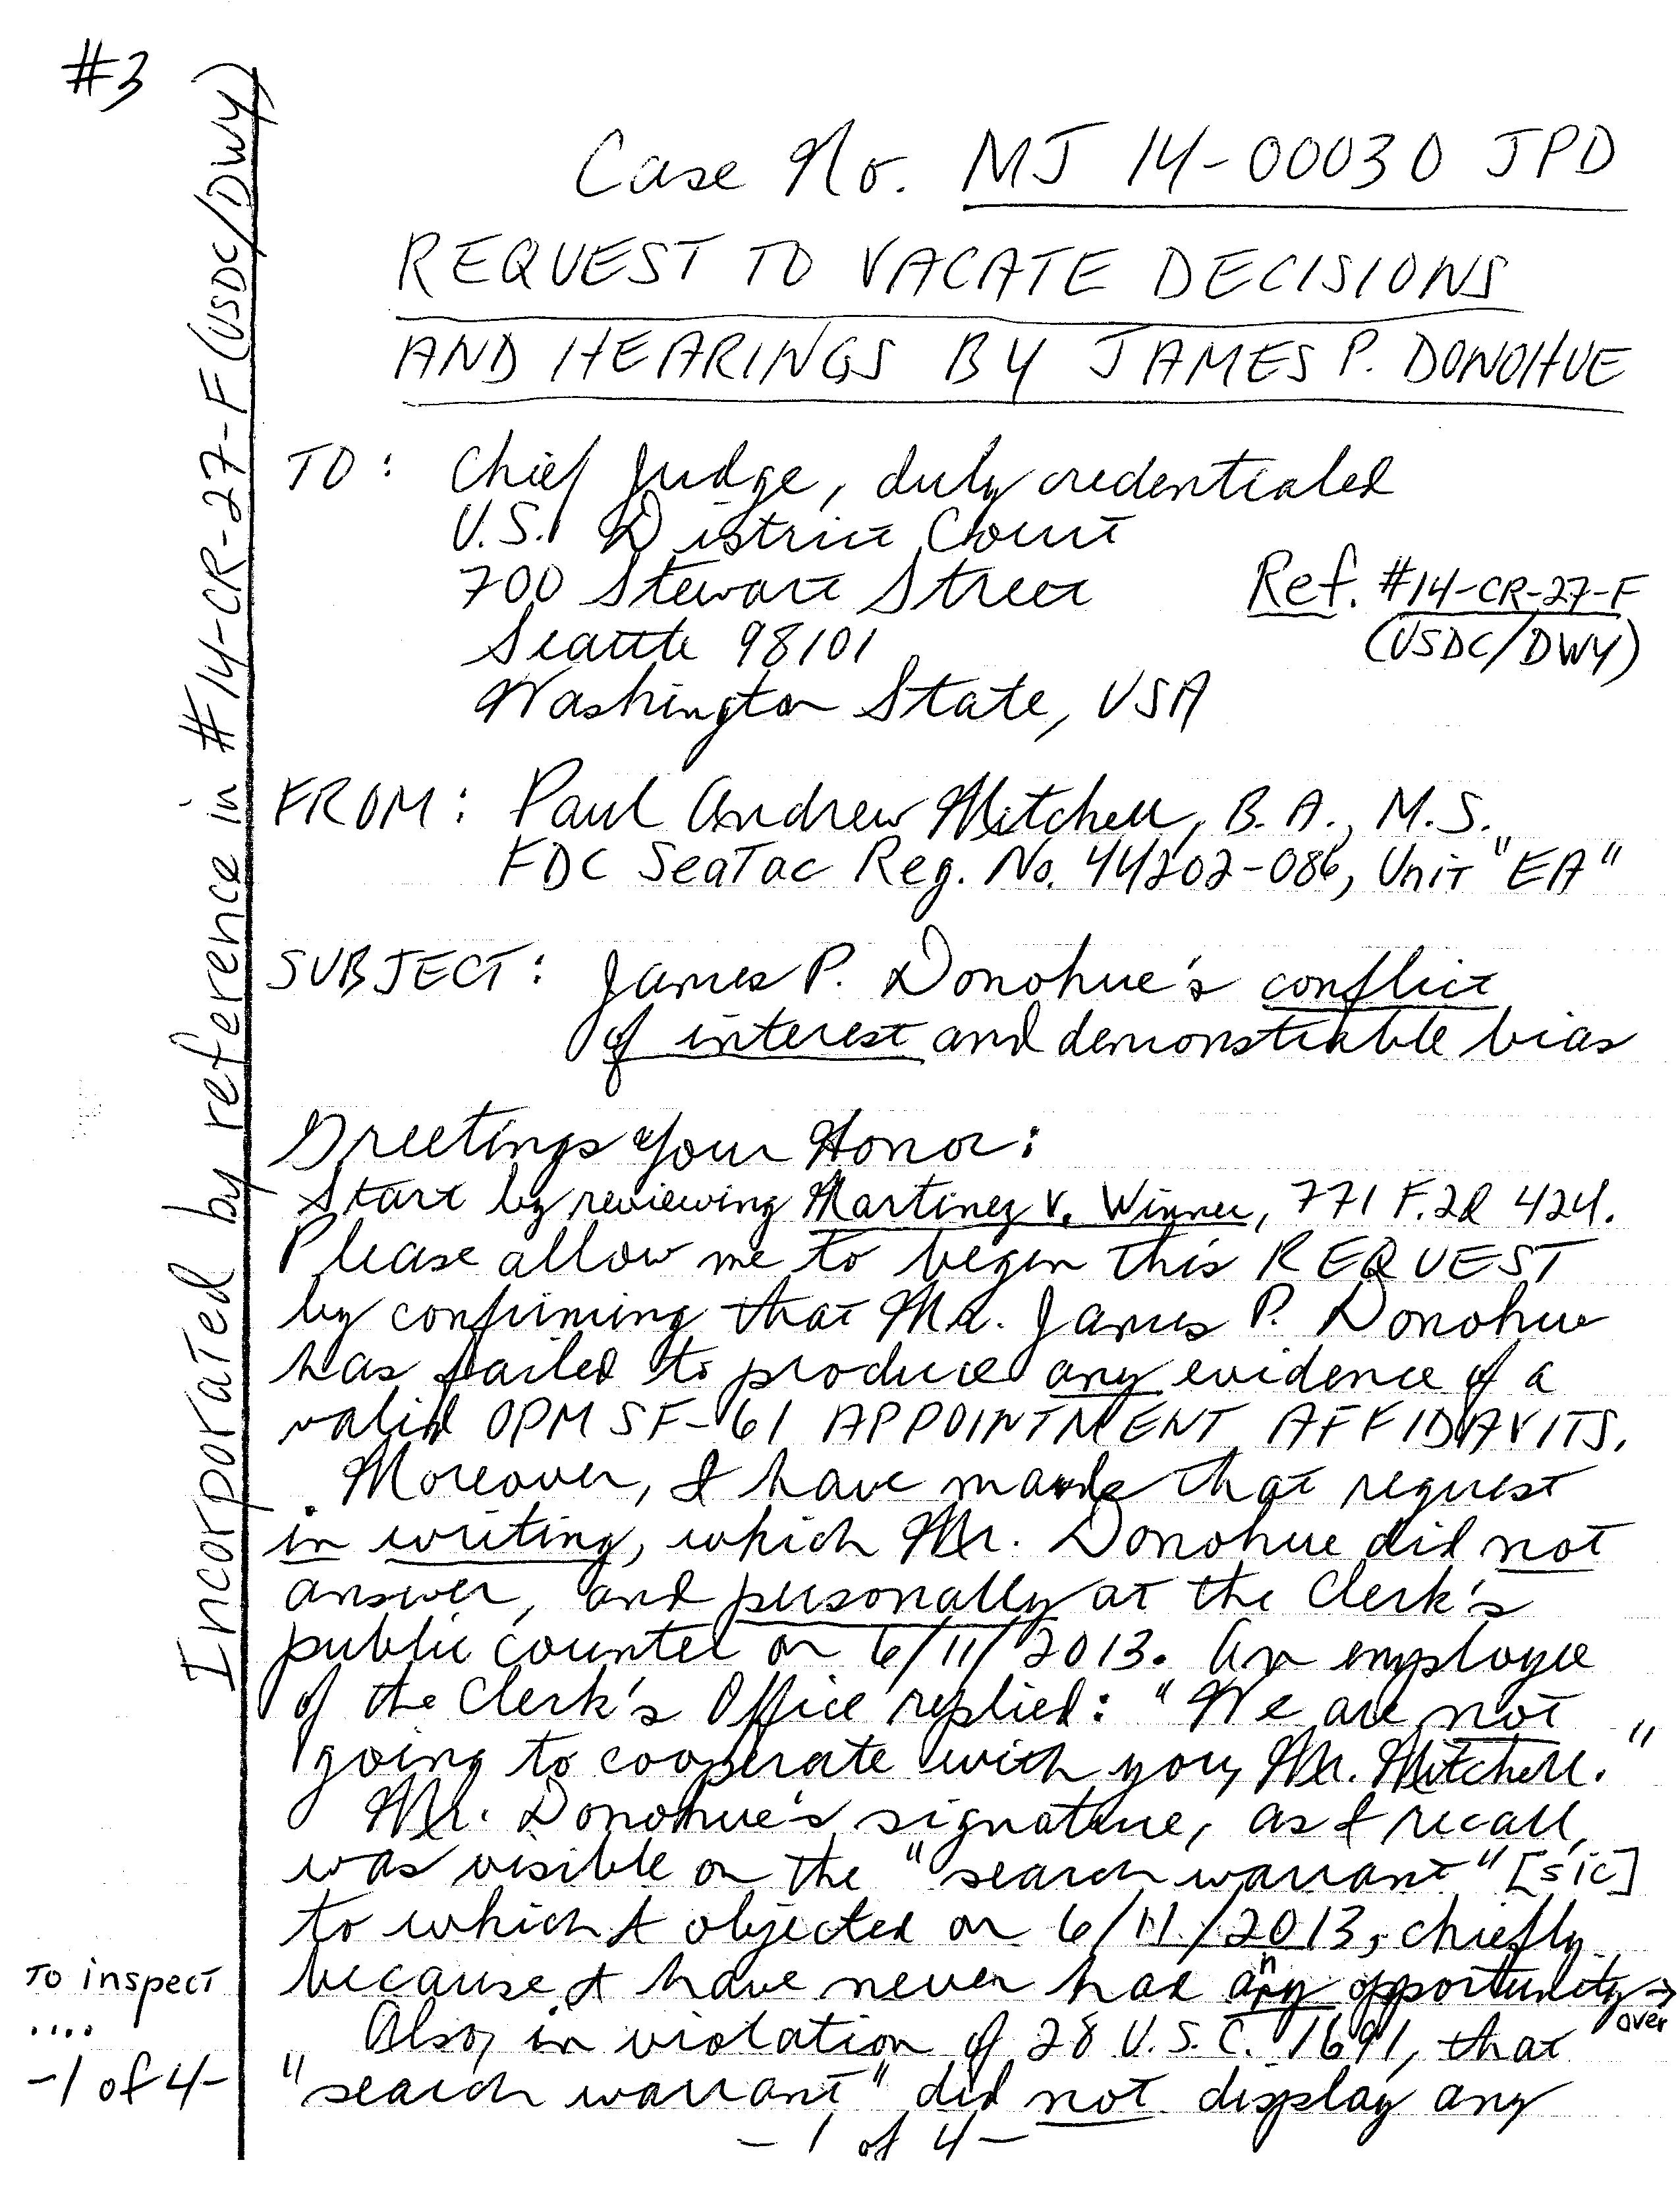 #3
Incorporated by reference in #14-CR-27-F (USDC/DWY)
Case No. MJ 14-00030 JPD
REQUEST TO VACATE DECISIONS
AND HEARINGS BY JAMES P. DONOHUE
TO: Chief Judge, duly credentialed
U.S. District Court
700 Stewart Street
Ref. #14-CR-27-F
Seattle 98101
(USDC/DWY)
Washington State, USA
FROM: Paul Andrew Mitchell, B.A., M.S.
FDC SeaTac Reg. No. 44202-086, Unit "EA"
SUBJECT: James P. Donohue's conflict
of interest and demonstrable bias
Greetings Your Honor:
Start by reviewing Martinez v. Winner, 771 F.2d 424.
Please allow me to begin this REQUEST
by confirming that Mr. James P. Donohue
has failed to produce any evidence of a
valid OPM SF-61 APPOINTMENT AFFIDAVITS.
Moreover, I have made that request
in writing, which Mr. Donohue did not
answer, and personally at the Clerk's
public counter on 6/11/2013. An employee
of the Clerk's Office replied: "We are not
going to cooperate with you, Mr. Mitchell."
Mr. Donohue's signature, as I recall,
was visible on the "search warrant" [sic]
to which I objected on 6/11/2013, chiefly
because I have never had any opportunity →
over
to inspect
....
Also, in violation of 28 U.S.C. 1691, that
"search warrant" did not display any
-1 of 4-
-1 of 4-